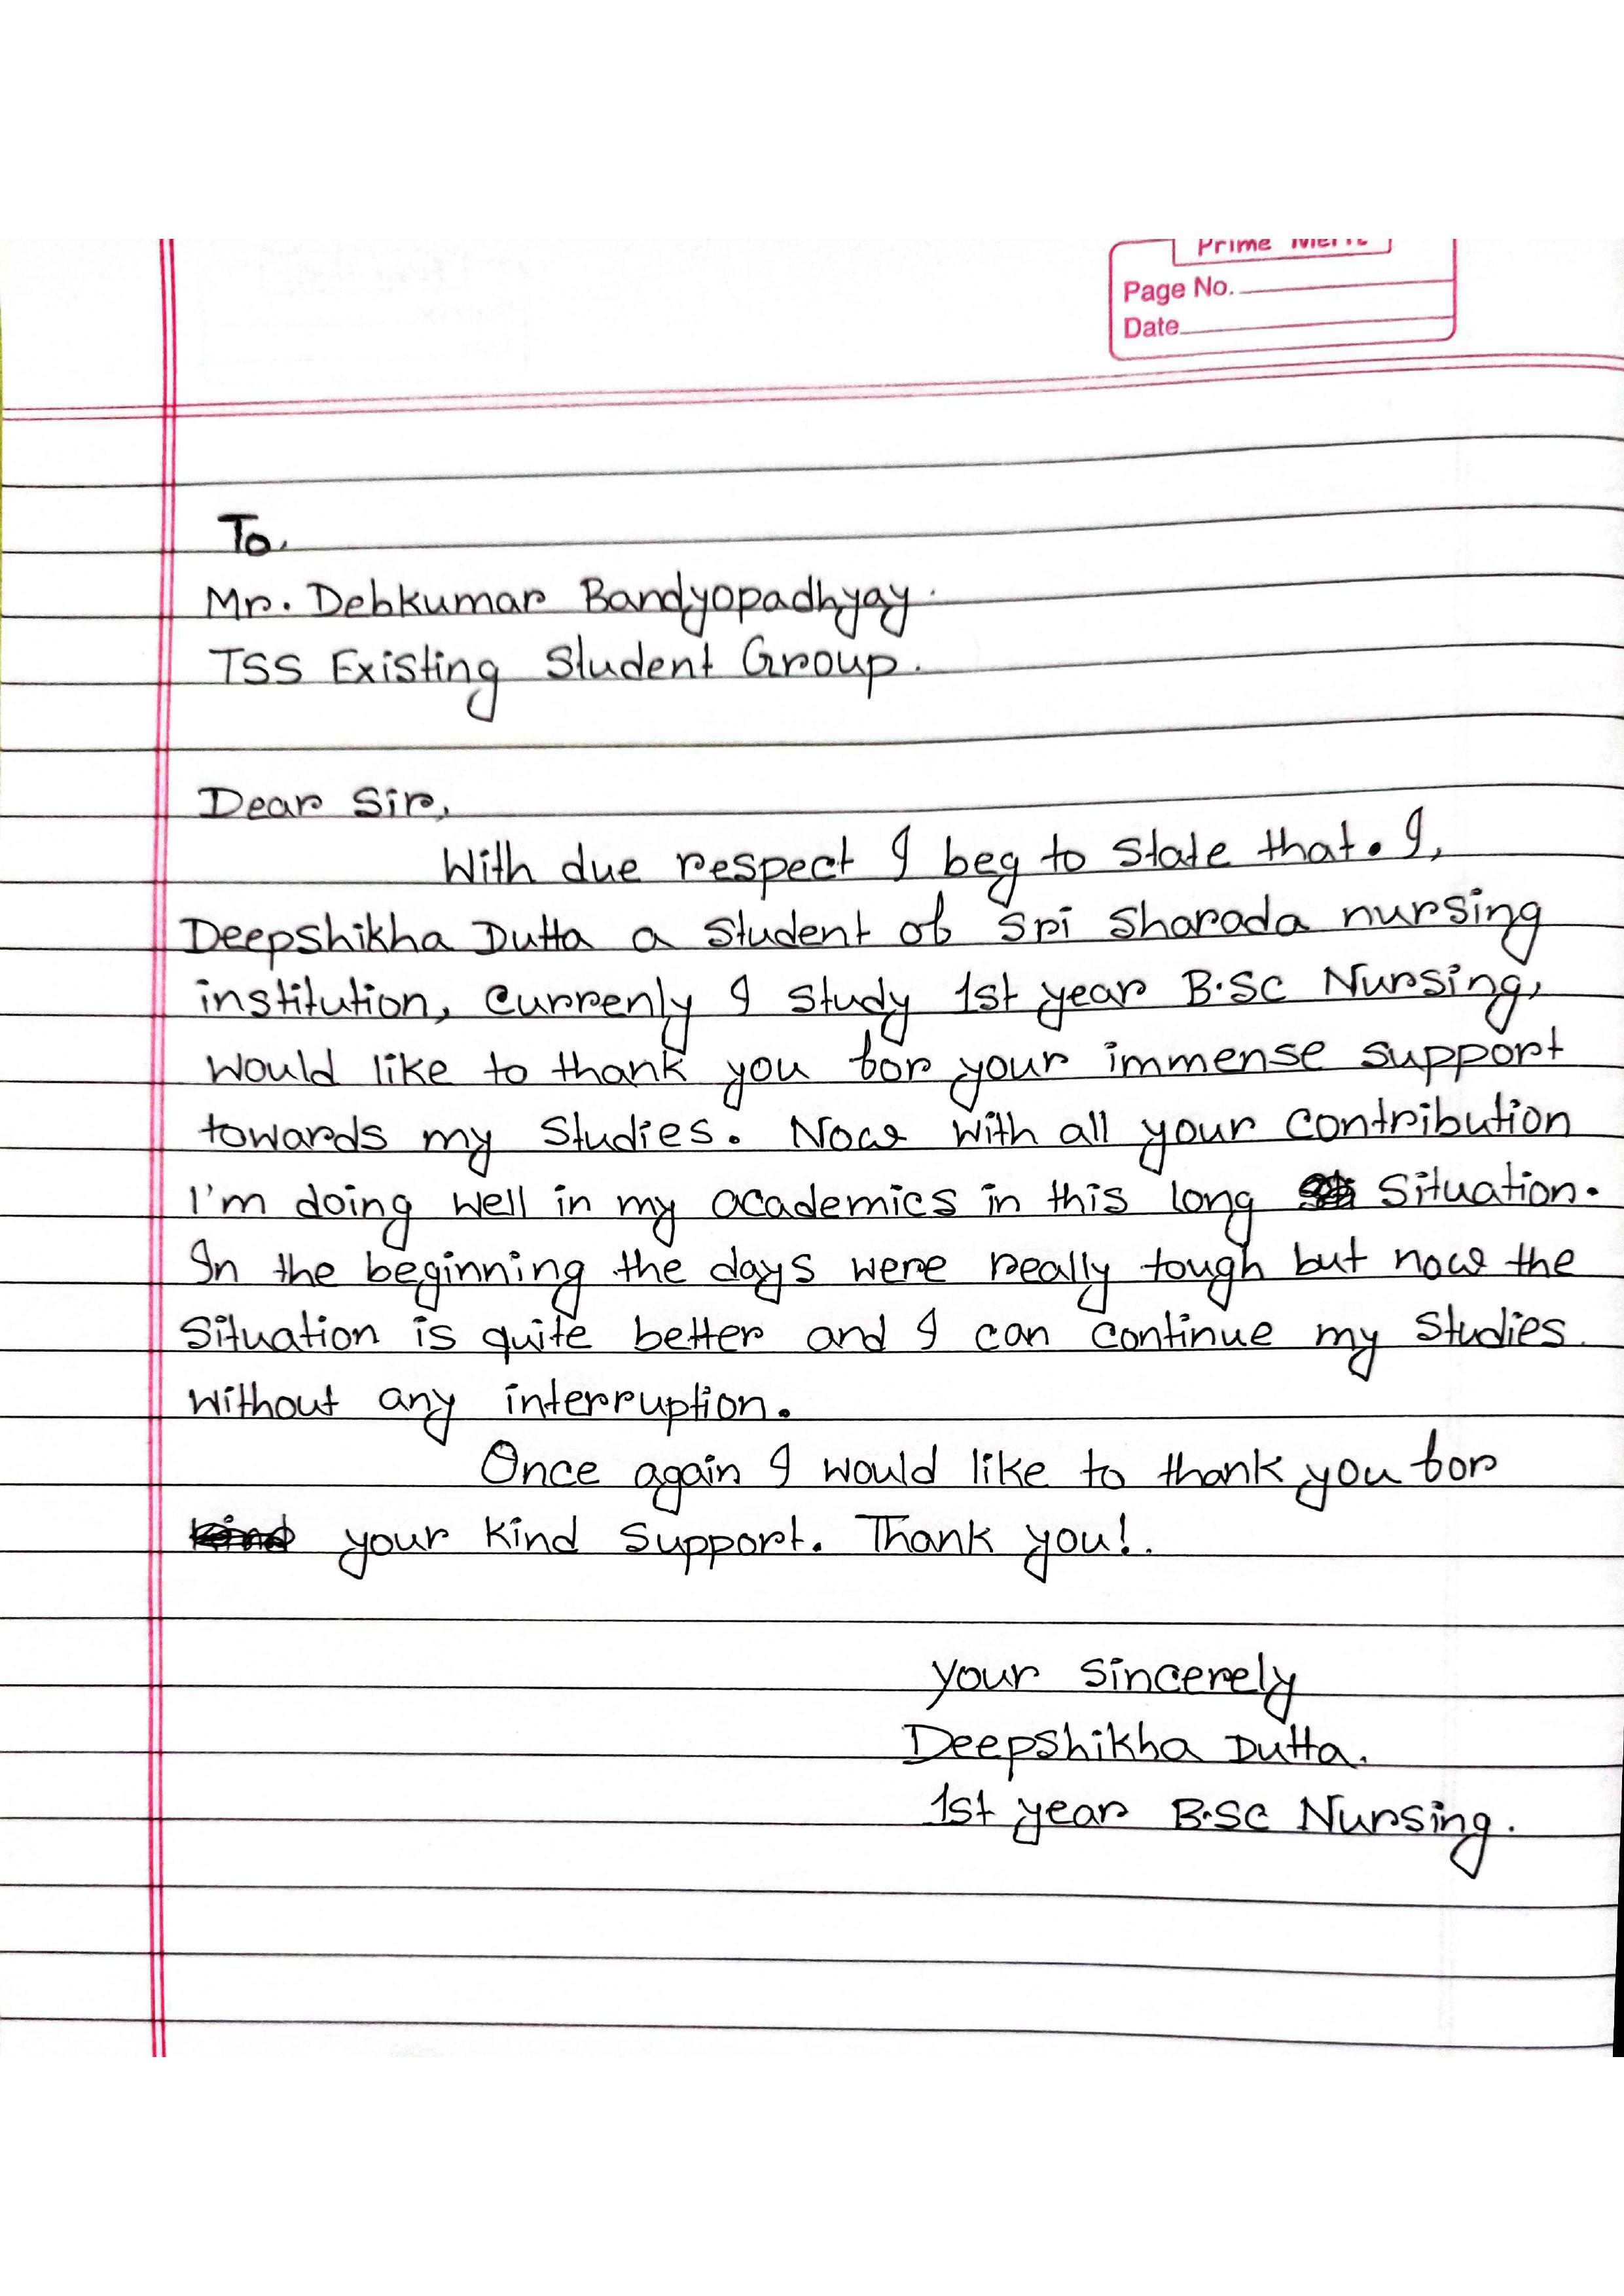 Prime Merit
Page No.
Date
To,
Mr. Debkumar Bandyopadhyay.
TSS Existing Student Group.
Dear Sir,
With due respect I beg to state that. I,
Deepshikha Dutta a student of Sri Sharada nursing
institution, currenly I study 1st year B.SC Nursing,
would like to thank you for your immense support
towards my studies. Now with all your contribution
I'm doing well in my academics in this long situation.
In the beginning the days were really tough but now the
situation is quite better and I can continue my studies.
without any interruption.
Once again I would like to thank you for
kind your kind support. Thank you!.
your sincerely
Deepshikha Dutta.
1st year B.SC Nursing.